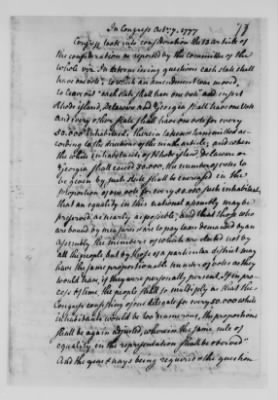 78
In Congress Octr. 7. 1777
Congress took into consideration the 13 article of
the confederation as reported by the committee of the
whole viz. In determining questions each state shall
have one vote; to which an amendment was moved,
to leave out "each state shall have one vote" and insert
Rhode island, Delaware and Georgia shall have one Vote
and every other state shall have one vote for every
50.000 Inhabitants, therein
cording to the directions of the ninth article; and when
the white inhabitants of Rhode island, Delaware and
Georgia shall exceed 50.000, the number of votes to
be given by such state shall be encreased in the
proportion of one vote for every 50.000 such inhabitants,
that an equality in this national assembly may be
preserved as nearly as possible; and that those who
are bound by measures are to pay taxes demanded by an
assembly the members of which are elected not by
all the people, but by those of a particular district may
have the same proportionable number of votes as they
would have, if they were personally present. If in pro-
cess of time, the people shall so multiply as that the
Congress consisting of one delegate for every 50.000 white
inhabitants would be too numerous, the proportions
shall be again adjusted, wherein the same rule of
equality in the representation shall be observed"
And the yeas & nays being required & the question